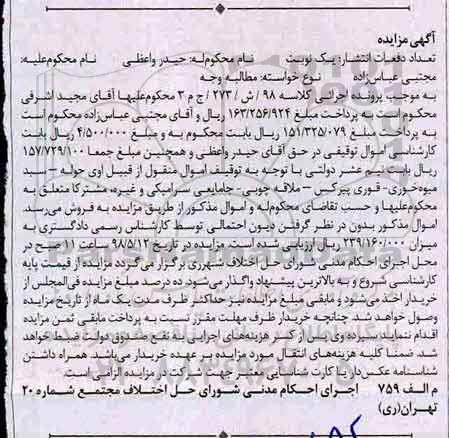 آگهی مزایده
تعداد دفعات انتشار: یک نوبت نام محکوم‌له: حیدر واعظی نام محکوم‌علیه:
مجتبی عباس‌زاده نوع خواسته: مطالبه وجه
به موجب پرونده اجرایی کلاسه ۹۸ / ش / ۲۷۳ / ج م ۳ محکوم‌علیها آقای مجید اشرفی
محکوم است به پرداخت مبلغ ۱۶۳/۲۵۶/۹۲۴ ریال و آقای مجتبی عباس‌زاده محکوم است
به پرداخت مبلغ ۱۵۱/۳۲۵/۰۷۹ ریال بابت محکوم به و مبلغ ۴/۵۰۰/۰۰۰ ریال بابت
کارشناسی اموال توقیفی در حق آقای حیدر واعظی و همچنین مبلغ جمعا ۱۵۷/۷۲۹/۱۰۰
ریال بابت نیم عشر دولتی با توجه به توقیف اموال منقول از قبیل اوی حوله – سبد
میوه‌خوری- قوری پیرکس – ملاقه چوبی- جامایعی سرامیکی و غیره، مشترکا متعلق به
محکوم‌علیها و حسب تقاضای محکوم‌له و اموال مذکور از طریق مزایده به فروش می‌رسد.
اموال مذکور بدون در نظر گرفتن دیون احتمالی توسط کارشناس رسمی دادگستری به
میزان ۲۳۹/۱۶۰/۰۰۰ ریال ارزیابی شده است. مزایده در تاریخ ۹۸/۵/۱۲ ساعت ۱۱ صبح در
محل اجرای احکام مدنی شورای حل اختلاف شهرری برگزار می‌گردد مزایده از قیمت پایه
کارشناسی شروع و به بالاترین پیشنهاد واگذار می‌شود. ده درصد مبلغ مزایده فی‌المجلس از
خریدار اخذ می‌شود و مابقی مبلغ مزایده نیز حداکثر ظرف مدت یک ماه از تاریخ مزایده
وصول خواهد شد. چنانچه خریدار ظرف مهلت مقرر نسبت به پرداخت مابقی ثمن مزایده
اقدام ننماید سپرده وی پس از کسر هزینه‌های اجرایی به نفع صندوق دولت ضبط خواهد
شد. ضمنا کلیه هزینه‌های انتقال مورد مزایده بر عهده خریدار می‌باشد. همراه داشتن
شناسنامه عکس‌دار یا کارت شناسایی معتبر جهت شرکت در مزایده الزامی است.
م الف ۷۵۹ اجرای احکام مدنی شورای حل اختلاف مجتمع شماره ۲۰
تهران(ری)